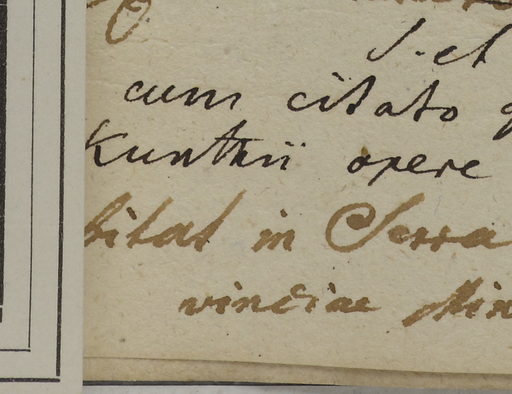 S. et
cum citato
Kunthii opere
bitat in Serra
vinciae Min